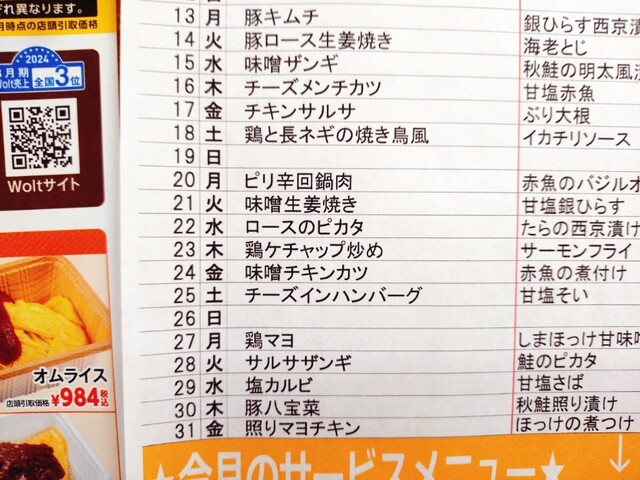 ぞれ異なります。
月時点の店頭引取価格
2024
月期
Wolt売上
全国3位
Woltサイト
オムライス
店頭引取価格 ¥984税込
13 月 豚キムチ 銀ひらす西京漬
14 火 豚ロース生姜焼き 海老とじ
15 水 味噌ザンギ 秋鮭の明太風
16 木 チーズメンチカツ 甘塩赤魚
17 金 チキンサルサ ぶり大根
18 土 鶏と長ネギの焼き鳥風 イカチリソース
19 日
20 月 ピリ辛回鍋肉 赤魚のバジルオ
21 火 味噌生姜焼き 甘塩銀ひらす
22 水 ロースのピカタ たらの西京漬け
23 木 鶏ケチャップ炒め サーモンフライ
24 金 味噌チキンカツ 赤魚の煮付け
25 土 チーズインハンバーグ 甘塩そい
26 日
27 月 鶏マヨ しまほっけ甘味噌
28 火 サルサザンギ 鮭のピカタ
29 水 塩カルビ 甘塩さば
30 木 豚八宝菜 秋鮭照り漬け
31 金 照りマヨチキン ほっけの煮つけ
★今月のサービスメニュー★